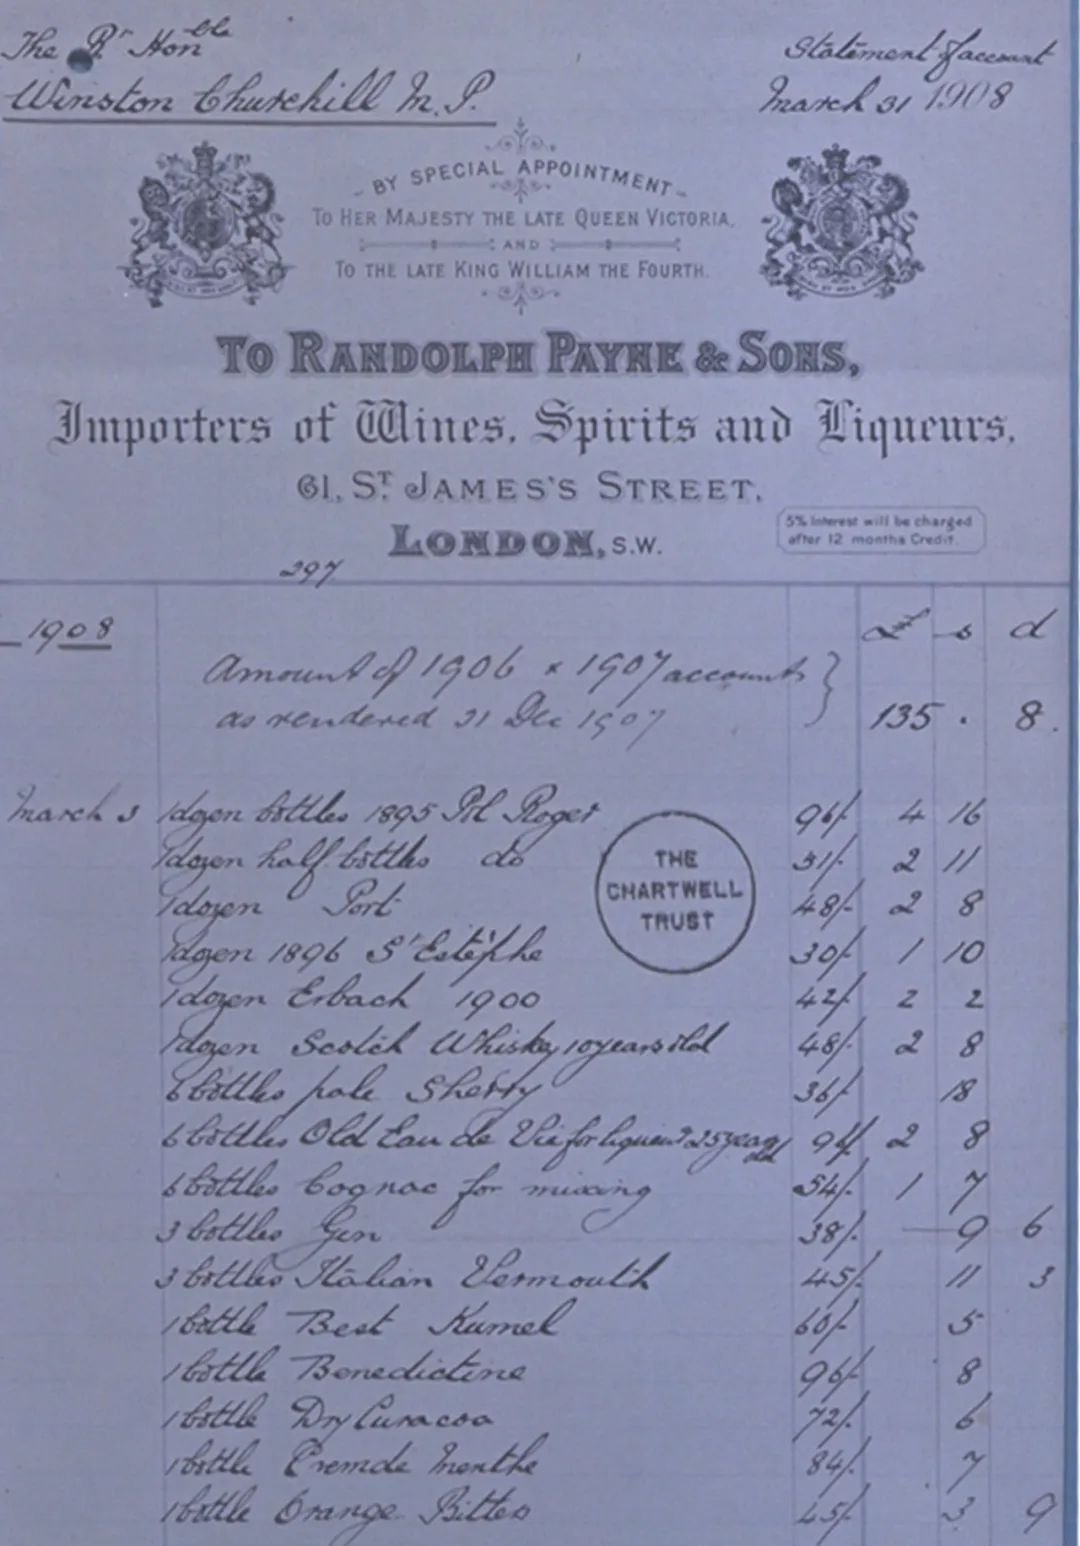 The Rt Honble
Winston Churchill M.P.
Statement of account
March 31 1908
BY SPECIAL APPOINTMENT
TO HER MAJESTY THE LATE QUEEN VICTORIA,
AND
TO THE LATE KING WILLIAM THE FOURTH.
TO RANDOLPH PAYNE & SONS,
Importers of Wines, Spirits and Liqueurs,
61, ST. JAMES'S STREET,
LONDON, S.W.
5% Interest will be charged
after 12 months Credit.
297
1908 £ s d
Amount of 1906 & 1907 accounts
as rendered 31 Dec 1907 135 . 8.
March 3 1 dozen bottles 1895 Pol Roger 96/- 4 16
1 dozen half bottles do 51/- 2 11
1 dozen Port 48/- 2 8
1 dozen 1896 St Estèphe 30/- 1 10
1 dozen Erbach 1900 42/- 2 2
1 dozen Scotch Whisky 10 years old 48/- 2 8
6 bottles pale Sherry 36/- 18
6 bottles Old Eau de Vie for liqueur 25 years old 96/- 2 8
6 bottles Cognac for mixing 54/- 1 7
3 bottles Gin 38/- — 9 6
3 bottles Italian Vermouth 45/- 11 3
1 bottle Best Kumel 60/- 5
1 bottle Benedictine 96/- 8
1 bottle Dry Curacoa 72/- 6
1 bottle Cremde Menthe 84/- 7
1 bottle Orange Bitters 45/- 3 9
THE
CHARTWELL
TRUST